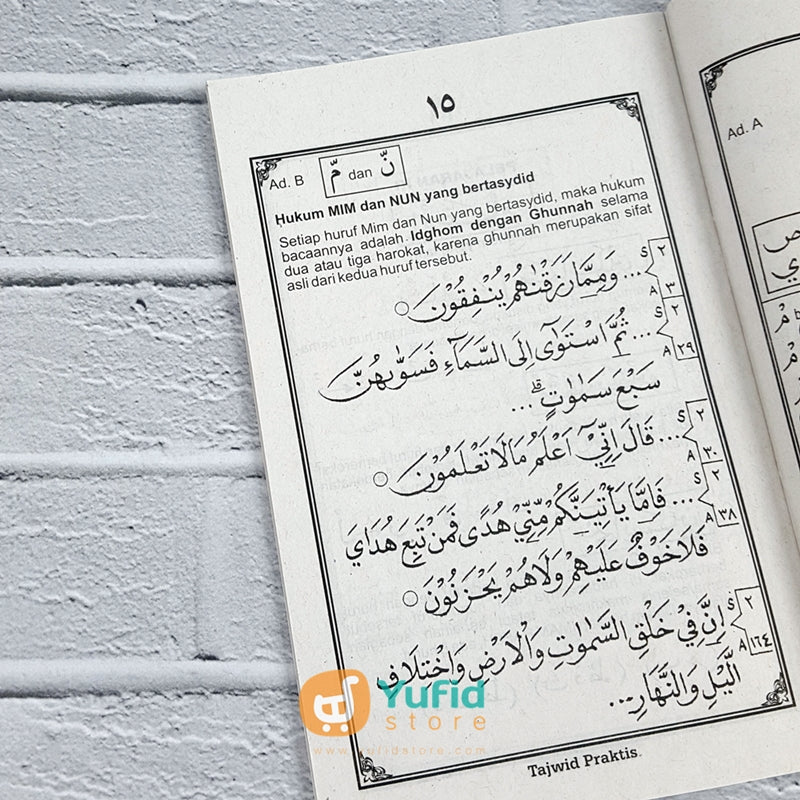 ١٥
Ad. B مّ dan نّ
Hukum MIM dan NUN yang bertasydid
Setiap huruf Mim dan Nun yang bertasydid, maka hukum
bacaannya adalah Idghom dengan Ghunnah selama
dua atau tiga harokat, karena ghunnah merupakan sifat
asli dari kedua huruf tersebut.
S ٢
... وَمِمَّا رَزَقْنٰهُمْ يُنْفِقُوْنَ
A ٣
S ٢
... ثُمَّ اسْتَوٰٓى اِلَى السَّمَاۤءِ فَسَوّٰىهُنَّ
A ٢٩
سَبْعَ سَمٰوٰتٍ ۗ ...
S ٢
... قَالَ اِنِّيْٓ اَعْلَمُ مَا لَا تَعْلَمُوْنَ
A ٣٠
S ٢
... فَاِمَّا يَأْتِيَنَّكُمْ مِّنِّيْ هُدًى فَمَنْ تَبِعَ هُدَايَ
A ٣٨
فَلَا خَوْفٌ عَلَيْهِمْ وَلَا هُمْ يَحْزَنُوْنَ
S ٢
اِنَّ فِيْ خَلْقِ السَّمٰوٰتِ وَالْاَرْضِ وَاخْتِلَافِ
A ١٦٤
الَّيْلِ وَالنَّهَارِ ...
Tajwid Praktis
Ad. A
Yufid
store
www.yufidstore.com